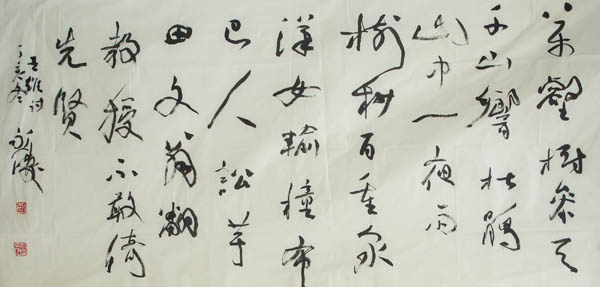 萬壑樹參天
千山響杜鵑
山中一夜雨
樹杪百重泉
漢女輸橦布
巴人訟芋
田文翁翻
教授不敢倚
先賢
王維詩
丁亥冬